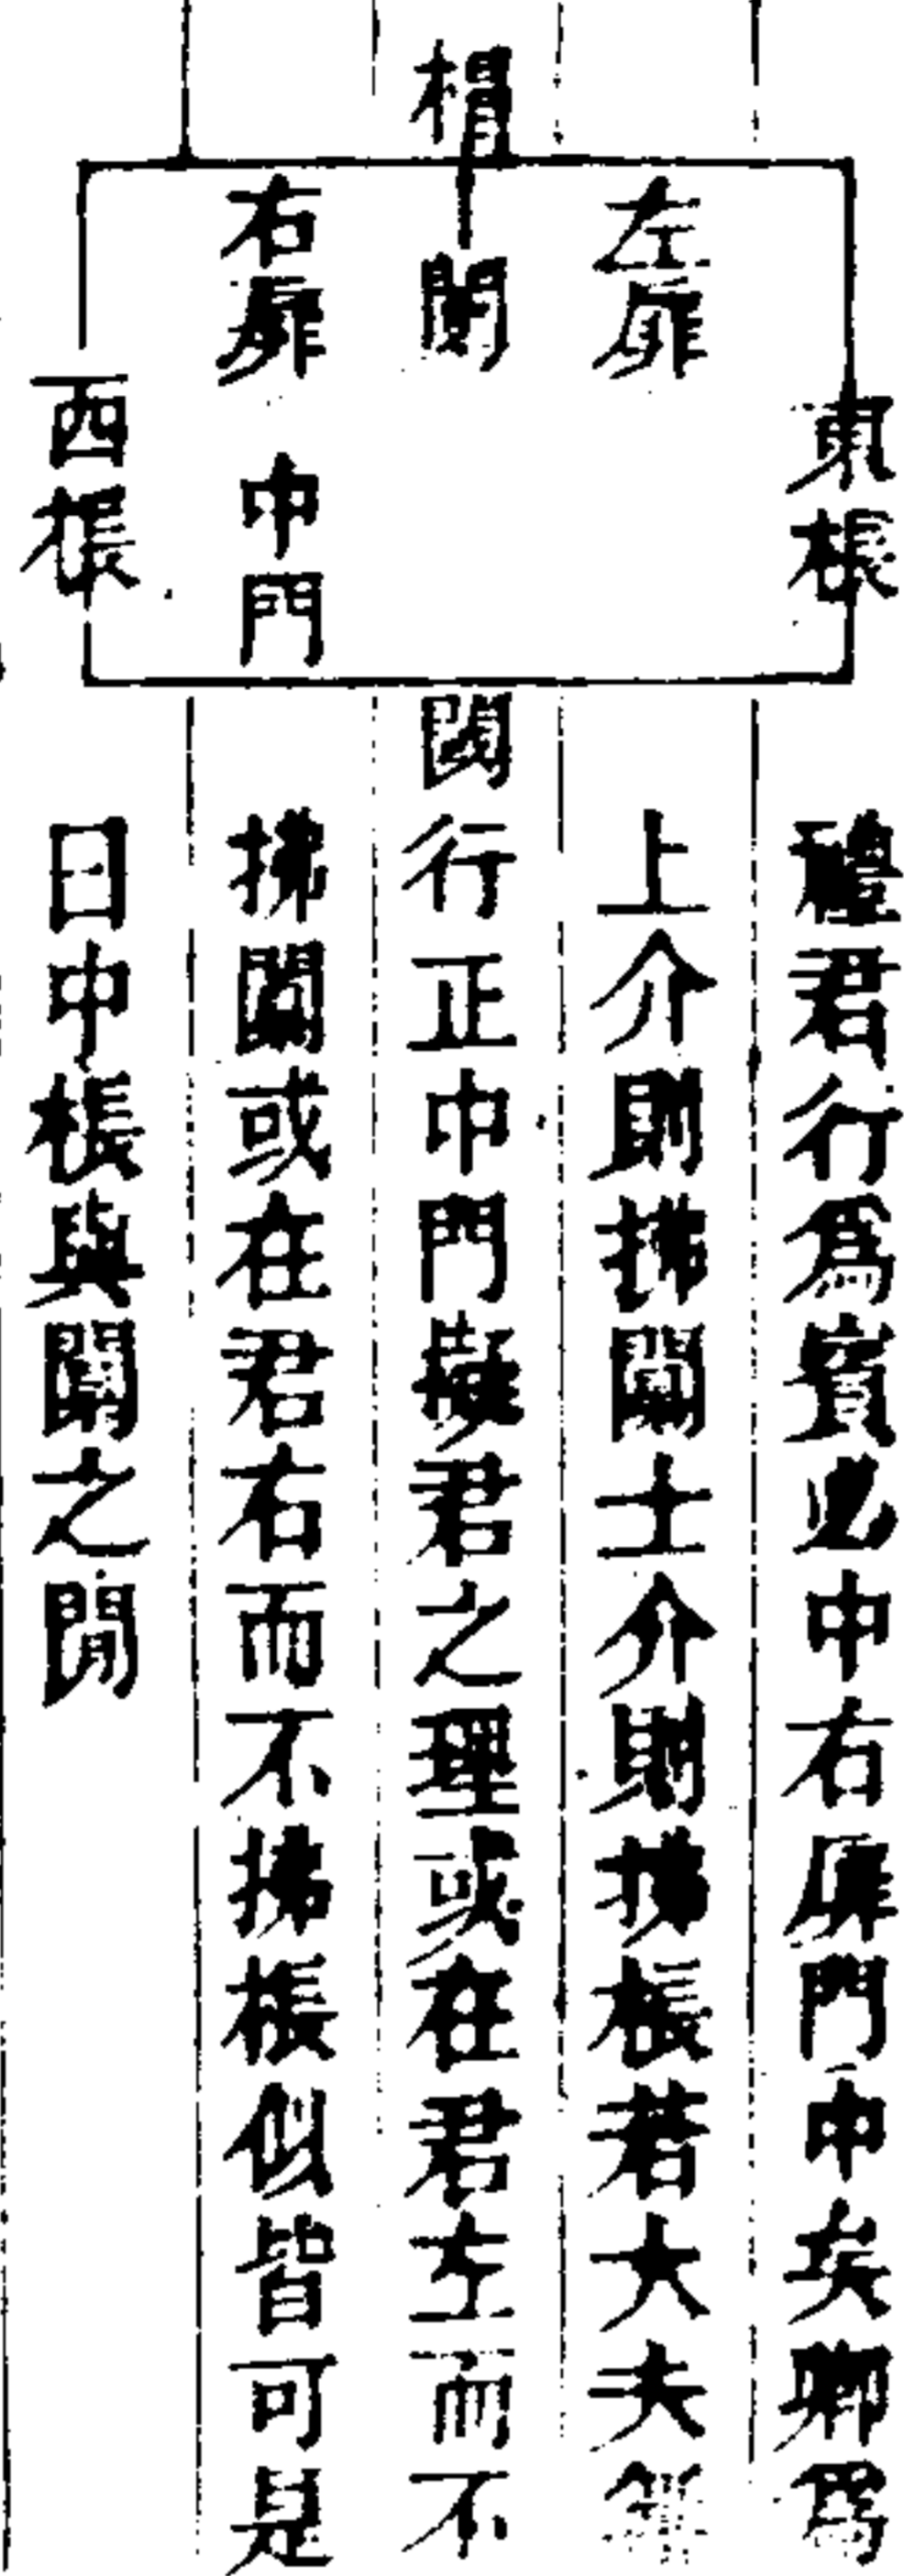 楣
左扉
闑
右扉
中門
東棖
西棖
閾
禮君行為賓必中右扉門中矣卿為
上介則拂闑士介則拂棖若大夫
行正中門擬君之理或在君左而不
拂闑或在君右而不拂棖似皆可是
日中棖與闑之閒